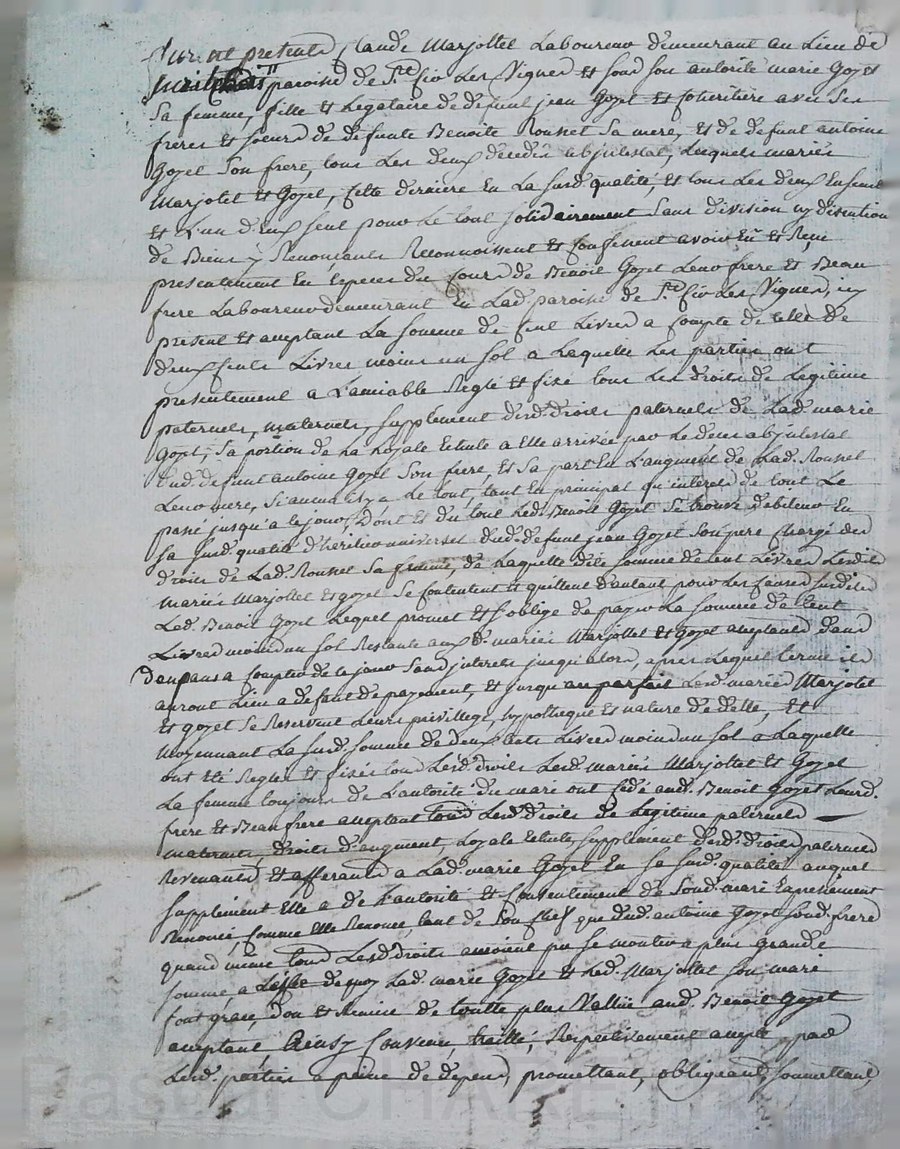 furent presents Claude Marjollet Laboureur demeurant au Lieu de
paroisse de Ste foy Les Vignes et sous son autorité marie Goyet
Sa femme, fille et Legataire de defunt jean Goyet et Coheritiere avec Ses
freres et soeurs de defunte Benoite Rousset Sa mere, et de defunt antoine
Goyet Son frere, tous Les deux décédés abjntestat, Lesquels mariés
Marjolet et Goyet, Cette derniere En La susd. qualité, et tous Les deux Ensemble
et L'un d'eux seul pour Le tout solidairement Sans division ny discution
de Biens y Renonçants Reconnoissent et Confessent avoir Eû et Reçu
presentement En Especes du Cours de Benoit Goyet Leur frere et Beau
frere Laboureur demeurant En Lad. paroisse de Ste foy Les Vignes, icy
present et acceptant La somme de Cent Livres a Compte de Celle de
deux Cents Livres moins un sol a Laquelle Les parties ont
presentement a L'amiable Reglé et fixé tous Les droits de Legitime
paternels, maternels, supplement desd. droits paternels de Lad. marie
Goyet, Sa portion de La Loyale Echute a Elle arrivée par Le deces abjntestat
dud. defunt antoine Goyet Son frere, et Sa part En L'augment de Lad. Rousset
Leur mere, Si aucun il y a Le tout, tant En principal qu'interets de tout Le
passé jusqu'a ce jour, Dont et du tout Led. Benoit Goyet Se trouve debiteur En
Sa susd. qualité d'heritier universel dud. defunt jean Goyet Son pere Chargé des
droits de Lad. Rousset Sa femme, de Laquelle dite somme de Cent Livres Lesdits
mariés Marjollet et Goyet Se Contentent et quittent d'autant pour Les Causes susdites
Led. Benoit Goyet Lequel promet et s'oblige de payer La somme de Cent
Livres moins un sol Restante aux d. mariés Marjollet et Goyet acceptants dans
deux ans a Compter de ce jour Sans jnterets jusqu'alors, apres Lequel terme ils
auront Lieu a defaut de payement, et jusqu'au parfait Lesd. mariés Marjolet
et Goyet Se Reservent Leurs privillege, hypotheque et nature de dette, Et
Moyennant La susd. somme de deux Cents Livres moins un sol a Laquelle
ont été Reglés et fixés tous Lesd. droits Lesd. mariés Marjollet et Goyet
La femme toujours de L'autorité du mari ont Cédé aud. Benoit Goyet Leurd.
frere et Beau frere acceptant tous Lesd. droits de Legitime paternels
maternels, droits d'augment, Loyale Echute, supplement desd. droits paternels
Revenants et afferants a Lad. marie Goyet En Sa susd. qualité auquel
supplement Elle a de L'autorité et Consentement de Sond. mari Expressement
Renoncé Comme Elle Renonce, tant de Son Chef que dud. antoine Goyet Sond. frere
quand même tous Lesd. droits auroient pu se monter a plus grande
somme a de quoy Lad. marie Goyet et Led. Marjollet son mari
font grace, don et Remise de toutte plus Vallüe aud. Benoit Goyet
acceptant Ainsy Convenu, traitté, Respectivement accepté par
Lesd. parties a peine de depens, promettant, obligeant, soumettant